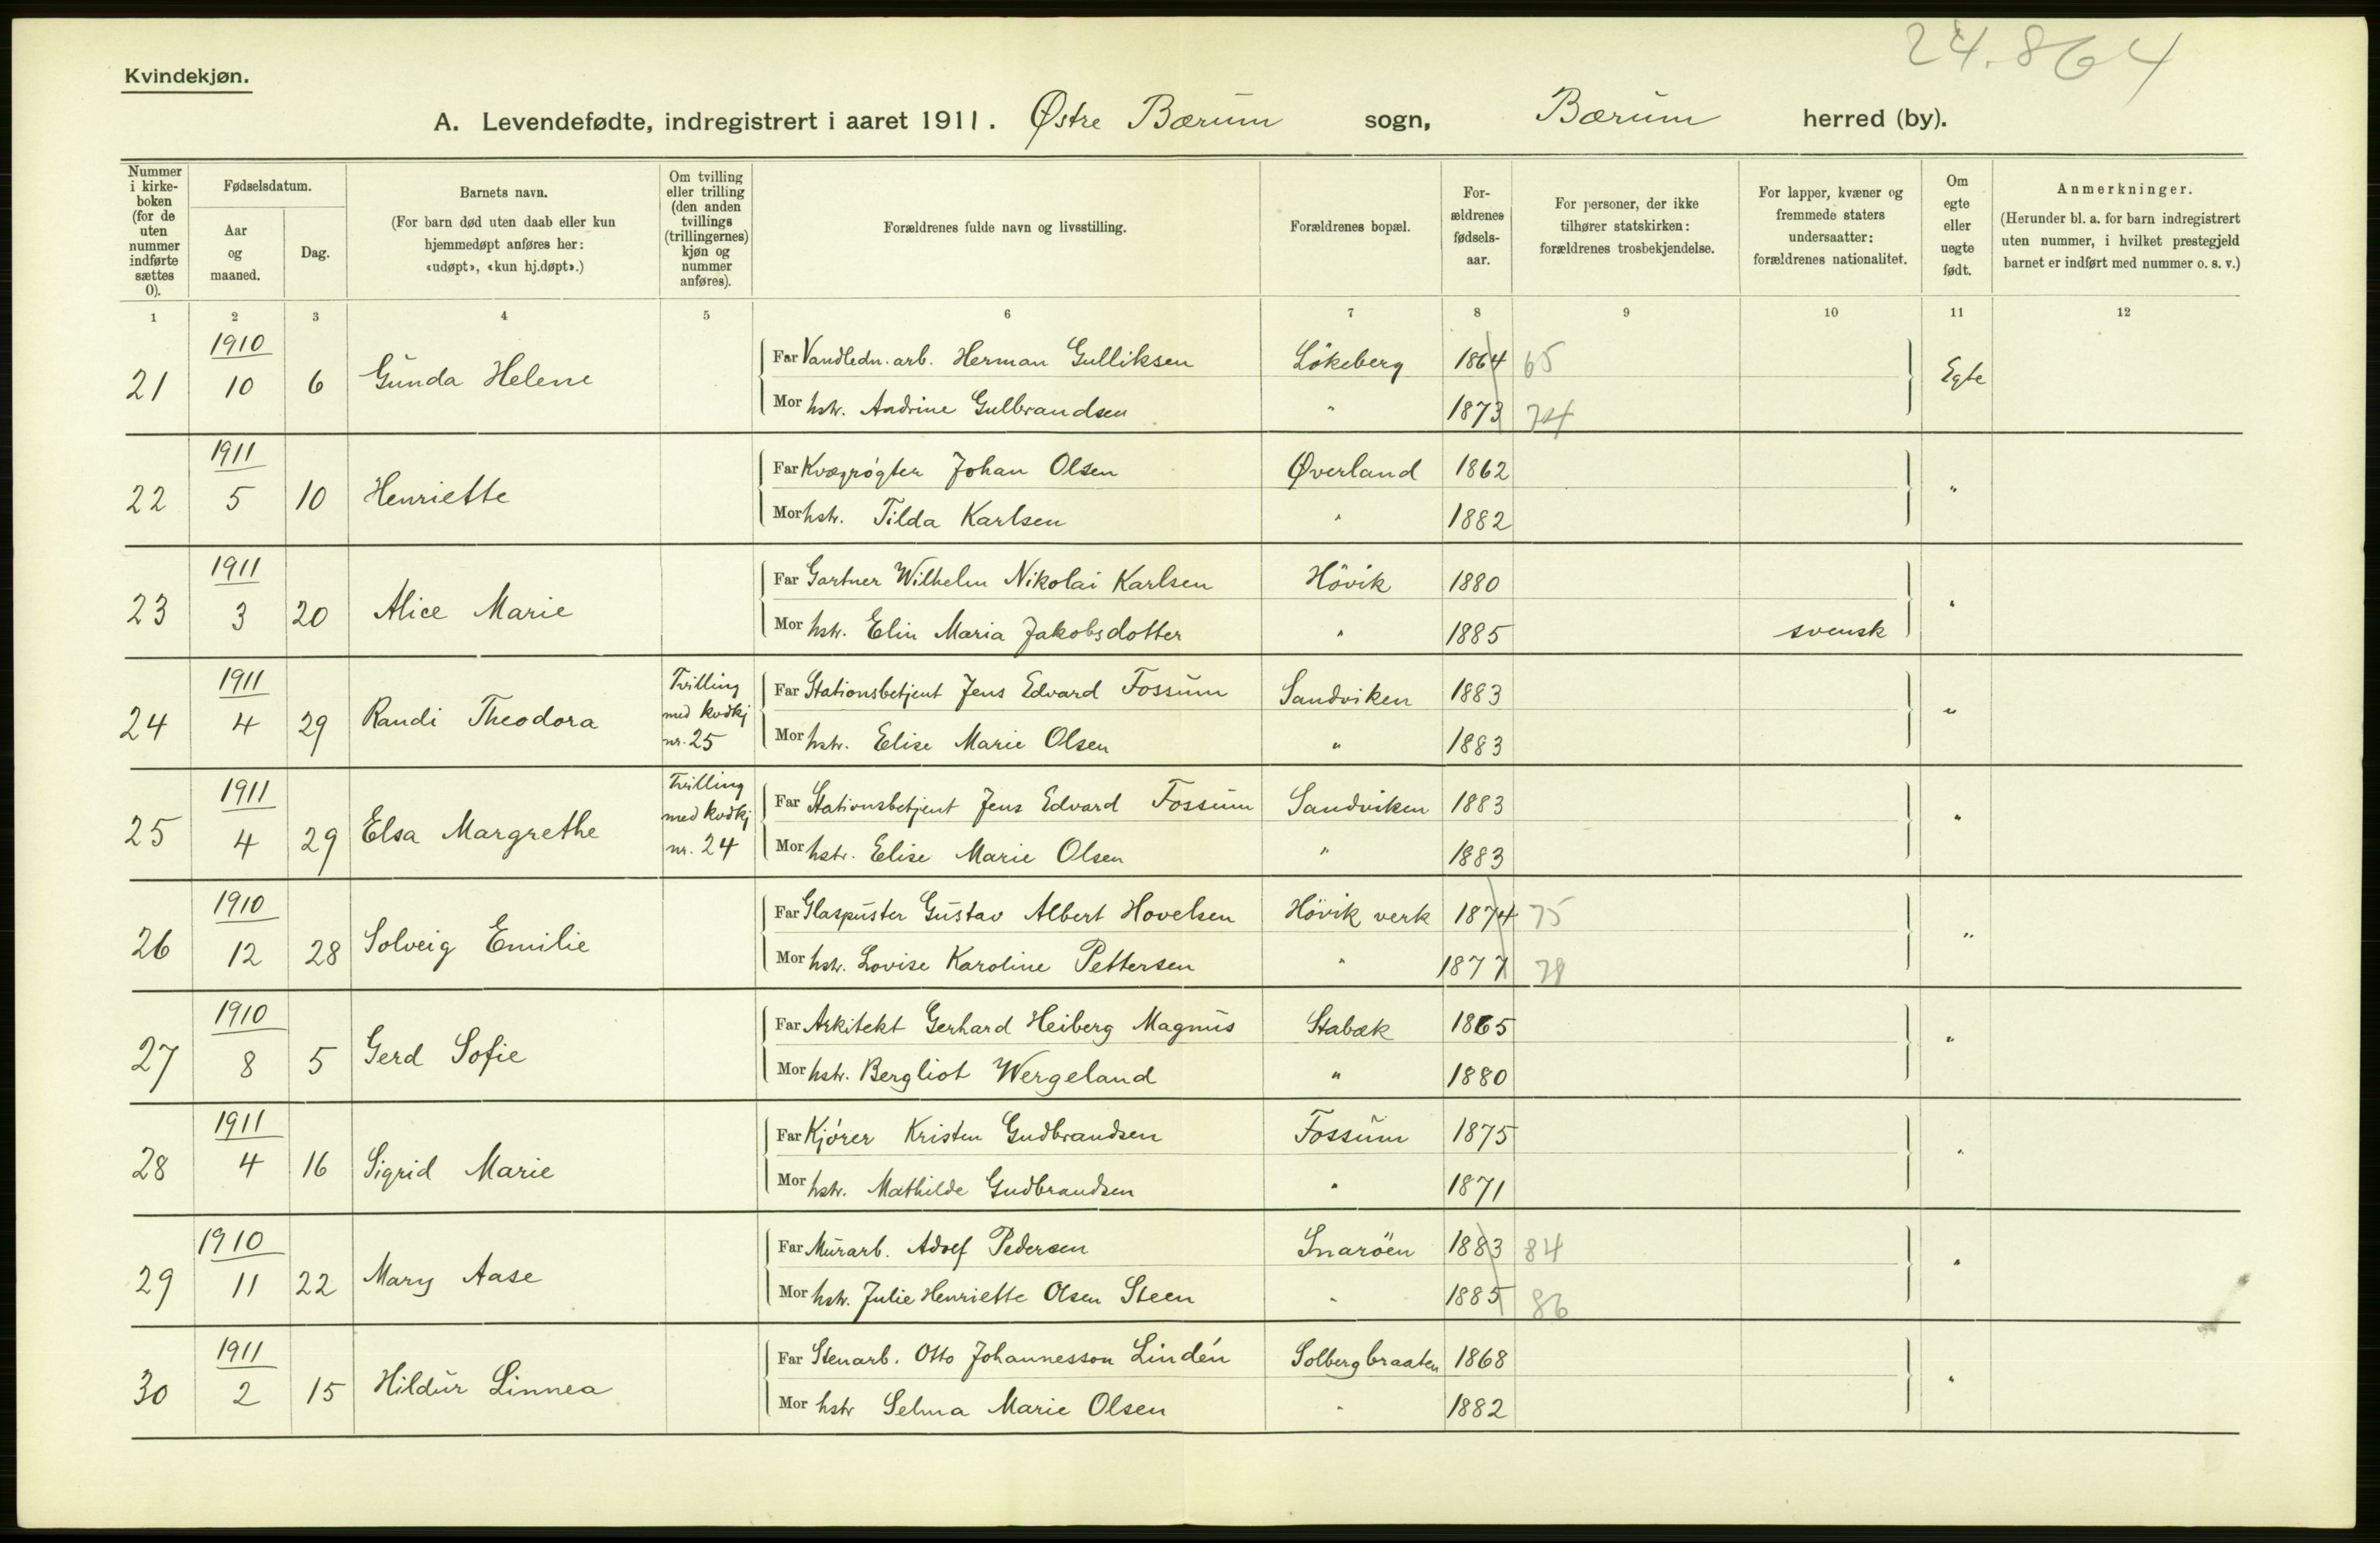 24.864
Kvindekjøn.
A. Levendefødte, indregistrert i aaret 1911. Østre Bærum sogn, Bærum herred (by).
Nummer i kirke-boken (for de uten nummer indførte sættes 0).
Fødselsdatum.
Aar og maaned.
Dag.
Barnets navn.
(For barn død uten daab eller kun hjemmedøpt anføres her: «udøpt», «kun hj.døpt».)
Om tvilling eller trilling (den anden tvillings (trillingernes) kjøn og nummer anføres).
Forældrenes fulde navn og livsstilling.
Forældrenes bopæl.
For-ældrenes fødsels-aar.
For personer, der ikke tilhører statskirken: forældrenes trosbekjendelse.
For lapper, kvæner og fremmede staters undersaatter: forældrenes nationalitet.
Om egte eller uegte født.
Anmerkninger.
(Herunder bl. a. for barn indregistrert uten nummer, i hvilket prestegjeld barnet er indført med nummer o. s. v.)
1 2 3 4 5 6 7 8 9 10 11 12
1910
21 10 6 Gunda Helene
Far Vandledn. arb. Herman Gulliksen Lökeberg 1864 65 Egte
Mor hstr. Andrine Gulbrandsen " 1873 74
1911
22 5 10 Henriette
Far Kvægrøgter Johan Olsen Øverland 1862 "
Mor hstr. Tilda Karlsen " 1882
1911
23 3 20 Alice Marie
Far Gartner Wilhelm Nikolai Karlsen Hövik 1880 "
Mor hstr. Elin Maria Jakobsdotter " 1885 svensk
1911
24 4 29 Randi Theodora Tvilling med kvdkj nr. 25
Far Stationsbetjent Jens Edvard Fossum Sandviken 1883 "
Mor hstr. Elise Marie Olsen " 1883
1911
25 4 29 Elsa Margrethe Tvilling med kvdkj nr. 24
Far Stationsbetjent Jens Edvard Fossum Sandviken 1883 "
Mor hstr. Elise Marie Olsen " 1883
1910
26 12 28 Solveig Emilie
Far Glaspuster Gustav Albert Hovelsen Hövik verk 1874 75 "
Mor hstr. Lovise Karoline Pettersen " 1877 78
1910
27 8 5 Gerd Sofie
Far Arkitekt Gerhard Heiberg Magnus Stabæk 1865 "
Mor hstr. Bergliot Wergeland " 1880
1911
28 4 16 Sigrid Marie
Far Kjörer Kristen Gudbrandsen Fossum 1875 "
Mor hstr. Mathilde Gudbrandsen " 1871
1910
29 11 22 Mary Aase
Far Murarb. Adolf Pedersen Snaröen 1883 84 "
Mor hstr. Julie Henriette Olsen Steen " 1885 86
1911
30 2 15 Hildur Linnea
Far Stenarb. Otto Johannesson Lindén Solbergbraaten 1868 "
Mor hstr Selma Marie Olsen " 1882